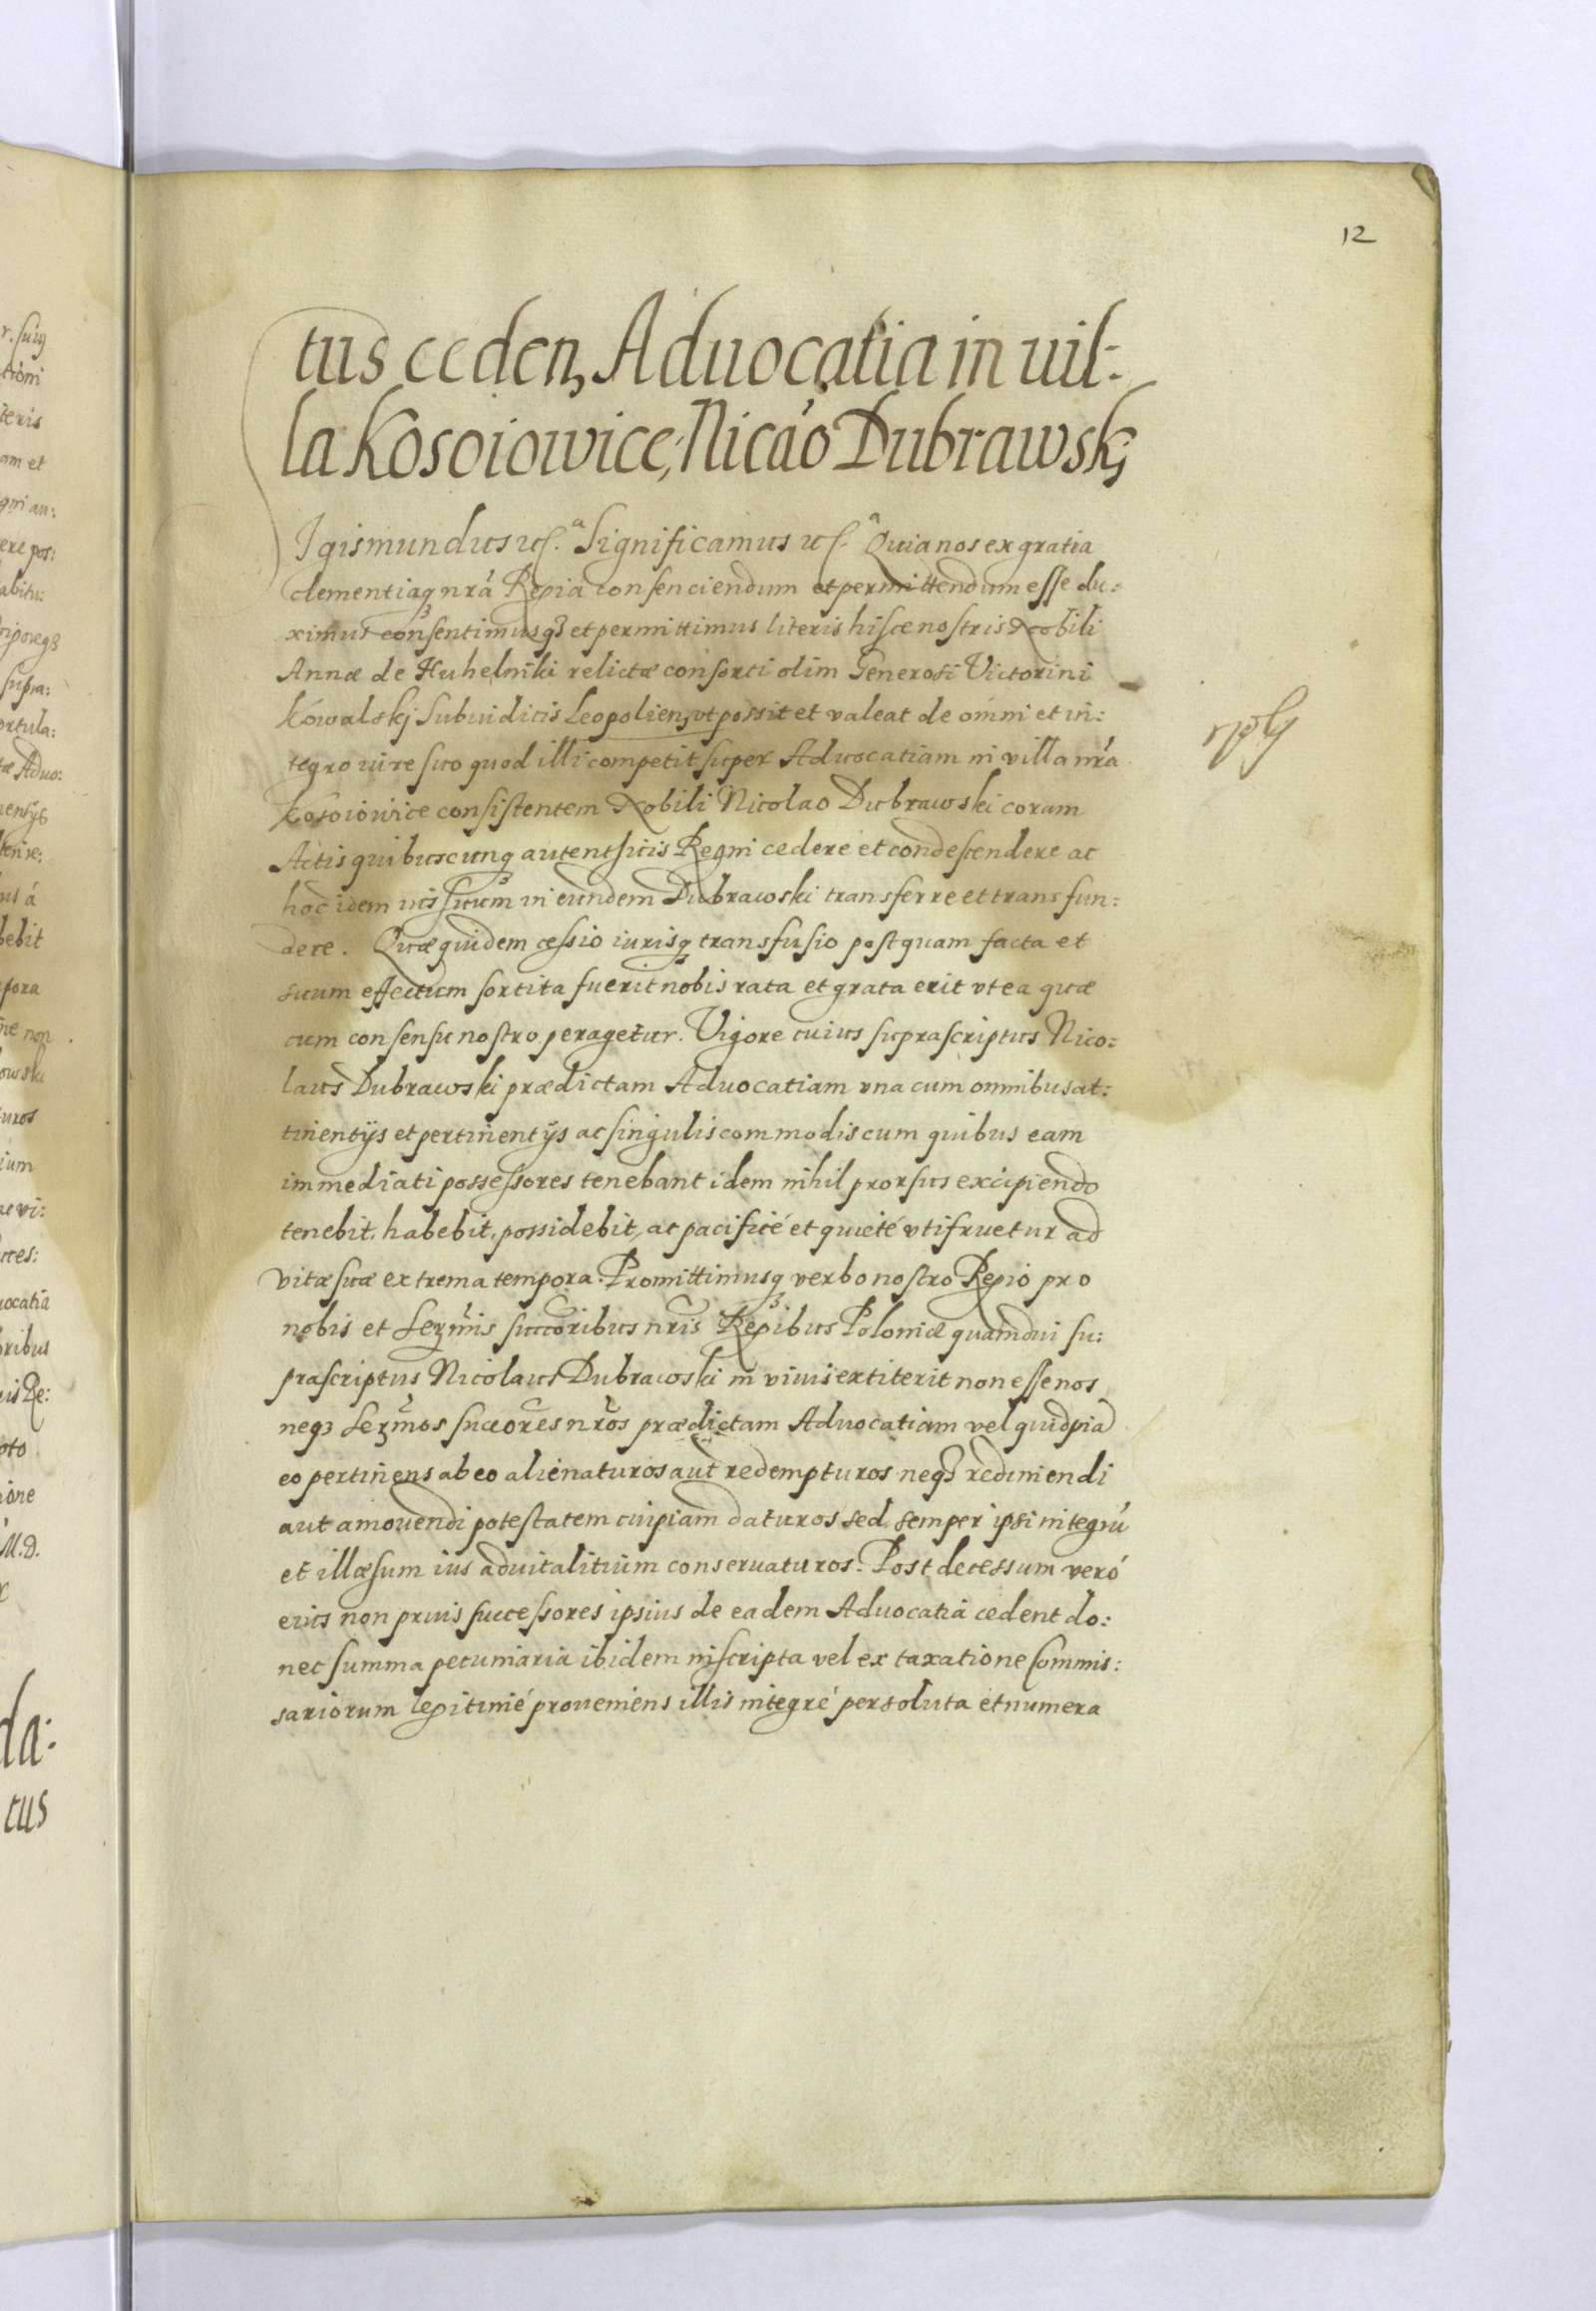 12
tus ceden, Aduocatia in uil:
la Kosoiowice, Nicao Dubrawski
Igismundus Significamus Quia nos ex gratia
clementiaq nra Regia consenciendum et permittendum esse du:
ximus consentimusq et permittimus literis hisce nostris Nobili
Annæ de Huhelniki relictæ consorti olim Generosi Victorini
Kowalskj Subiudicis Leopolien, vt possit et valeat de omni et in:
tegro iure suo quod illi competit super Aduocatiam in villa nra
Kosoiowice consistentem Nobili Nicolao Dubrawski coram
Actis quibuscunq autenthicis Regni cedere et condescendere ac
hoc idem ius suum in eundem Dubrawski transferre et transfun:
dere. Quæ quidem cessio iurisq transfusio postquam facta et
suum effectum sortita fuerit nobis rata et grata erit vt ea quæ
cum consensu nostro peragetur. Vigore cuius suprascriptus Nico:
laus Dubrawski prædictam Aduocatiam vna cum omnibus at:
tinentijs et pertinentijs ac singulis commodis cum quibus eam
immediati possessores tenebant idem nihil prorsus excipiendo
tenebit, habebit, possidebit, ac pacificé et quieté vtifruetur ad
vitæ suæ extrema tempora. Promittimusq verbo nostro Regio pro
nobis et Sermis succoribus nris Regibus Poloniæ quamdiu su:
prascriptus Nicolaus Dubrawski in viuis extiterit non esse nos
neq Sermos succores nros prædictam Aduocatiam vel quidpiad
eo pertinens ab eo alienaturos aut redempturos neq redimendi
aut amouendi potestatem cuipiam daturos sed semper ipsi integrú
et illæsum ius aduitalitium conseruaturos. Post decessum veró
eius non prius successores ipsius de eadem Aduocatia cedent do:
nec summa pecuniaria ibidem inscripta vel ex taxatione Commis:
sariorum legitimé proueniens illis integré persoluta et numera